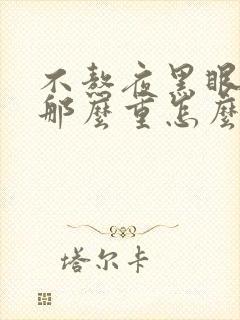 不熬夜黑眼
那麼重怎麼
塔尔卡